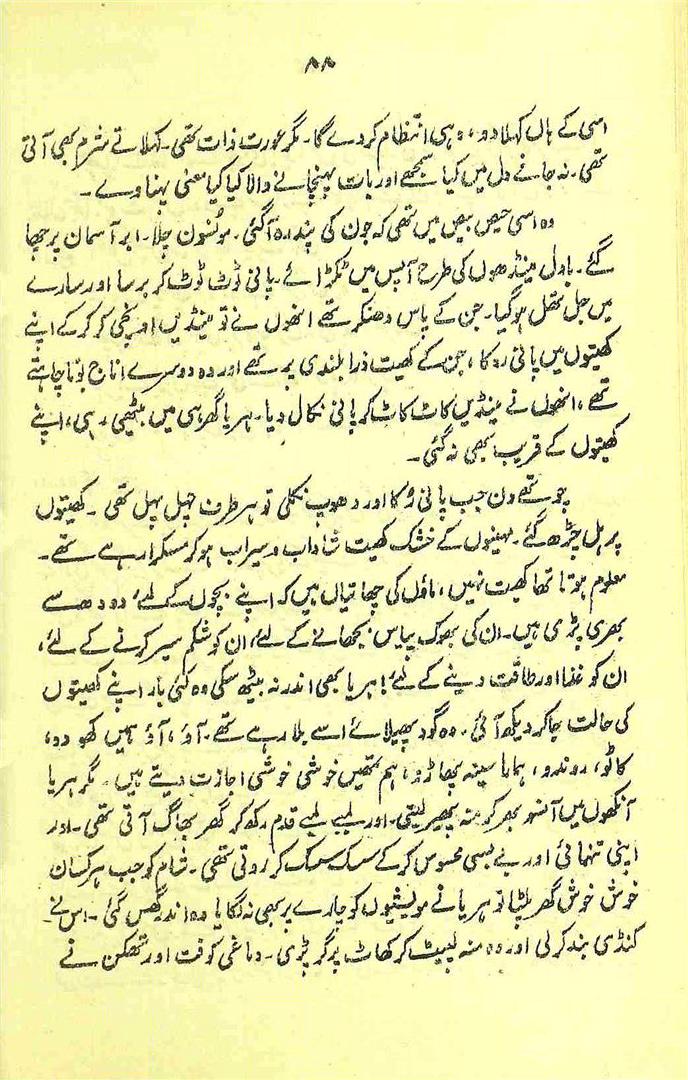 ۸۸
اسی کے ہاں کہلا دو، وہی انتظام کر دے گا۔ مگر عورت ذات تھی۔ کہلاتے شرم بھی آتی
تھی۔ نہ جانے دل میں کیا سمجھے اور بات پہنچانے والا کیا کیا معنی پہناوے۔
وہ اسی حیص بیص میں تھی کہ جون کی پندرہ آگئی۔ مونسون چلا۔ ابر آسمان پر چھا
گئے۔ بادل مینڈھوں کی طرح آپس میں ٹکڑائے۔ پانی ٹوٹ ٹوٹ کر برسا اور سارے
میں جل تھل ہوگیا۔ جن کے پاس دھنکر تھے انھوں نے تو مینڈیں اونچی کر کر کے اپنے
کھیتوں میں پانی روکا، جن کے کھیت ذرا بلندی پر تھے اور وہ دوسرے اناج بونا چاہتے
تھے، انھوں نے مینڈیں کاٹ کاٹ کر پانی نکال دیا۔ ہریا گھر ہی میں بیٹھی رہی، اپنے
کھیتوں کے قریب بھی نہ گئی۔
چوتھے دن جب پانی رُکا اور دھوپ نکلی تو ہر طرف چہل پہل تھی۔ کھیتوں
پر ہل چڑھ گئے۔ مہینوں کے خشک کھیت شاداب و سیراب ہو کر مسکرا رہے تھے۔
معلوم ہوتا تھا کھیت نہیں، ماؤں کی چھاتیاں ہیں کہ اپنے بچوں کے لئے دودھ سے
بھری پڑی ہیں۔ ان کی بھوک پیاس بجھانے کے لئے، ان کو شکم سیر کرنے کے لئے،
ان کو غذا اور طاقت دینے کے لئے! ہریا بھی اندر نہ بیٹھ سکی وہ کئی بار اپنے کھیتوں
کی حالت جاکر دیکھ آئی۔ وہ گود پھیلائے اسے بلا رہے تھے۔ آؤ، آؤ ہمیں کھودو،
کاٹو، روندو، ہمارا سینہ پھاڑو، ہم تمھیں خوشی خوشی اجازت دیتے ہیں۔ مگر ہریا
آنکھوں میں آنسو بھر کر منہ پھیر لیتی۔ اور لمبے لمبے قدم رکھ کر گھر بھاگ آتی تھی۔ اور
اپنی تنہائی اور بے بسی محسوس کر کے سسک سسک کر روتی تھی۔ شام کو جب ہر کسان
خوش خوش گھر پلٹا تو ہریا نے مویشیوں کو چارے پر بھی نہ لگایا وہ اندر گھس گئی۔ اس نے
کنڈی بند کر لی اور وہ منہ لپیٹ کر کھاٹ پر گر پڑی۔ دماغی کوفت اور تھکن نے